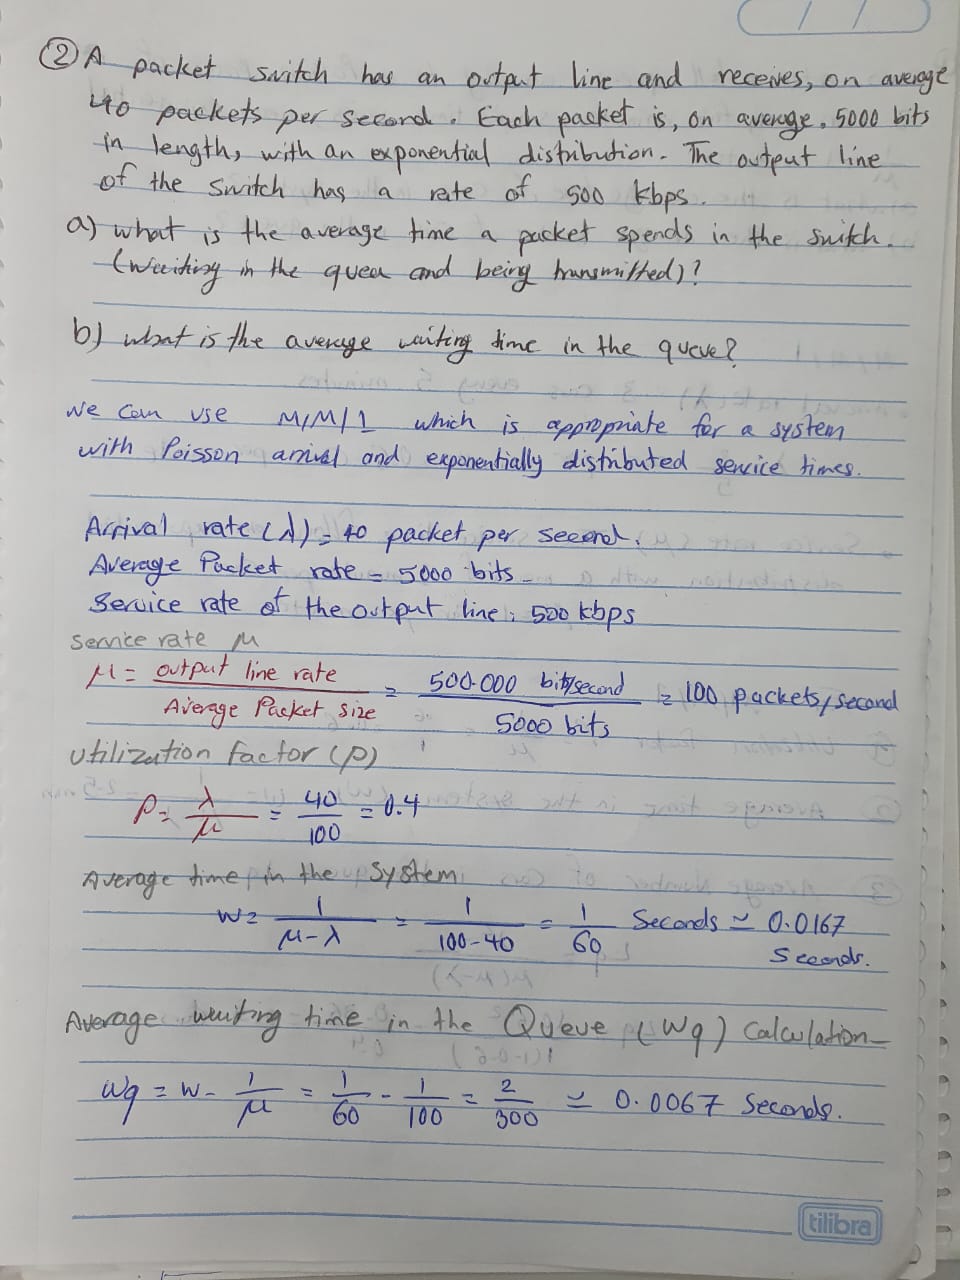 ② A packet switch has an output line and receives, on average
40 packets per second. Each packet is, on average, 5000 bits
in length, with an exponential distribution. The output line
of the switch has a rate of 500 kbps.
a) what is the average time a packet spends in the switch.
(waiting in the queu and being transmitted)?
b) what is the average waiting time in the queue?
we can use M/M/1 which is appropriate for a system
with Poisson arrival and exponentially distributed service times.
Arrival rate (λ) = 40 packet per second.
Average Packet rate = 5000 bits
Service rate of the output line: 500 kbps
service rate μ
μ = output line rate / Average Packet size = 500.000 bit/second / 5000 bits = 100 packets/second
Utilization factor (ρ)
ρ = λ / μ = 40 / 100 = 0.4
Average time in the System
W = 1 / μ-λ = 1 / 100-40 = 1 / 60 Seconds ≃ 0.0167
Seconds.
Average waiting time in the Queue (Wq) Calculation
Wq = W - 1 / μ = 1 / 60 - 1 / 100 = 2 / 300 ≃ 0.0067 Seconds.
tilibra